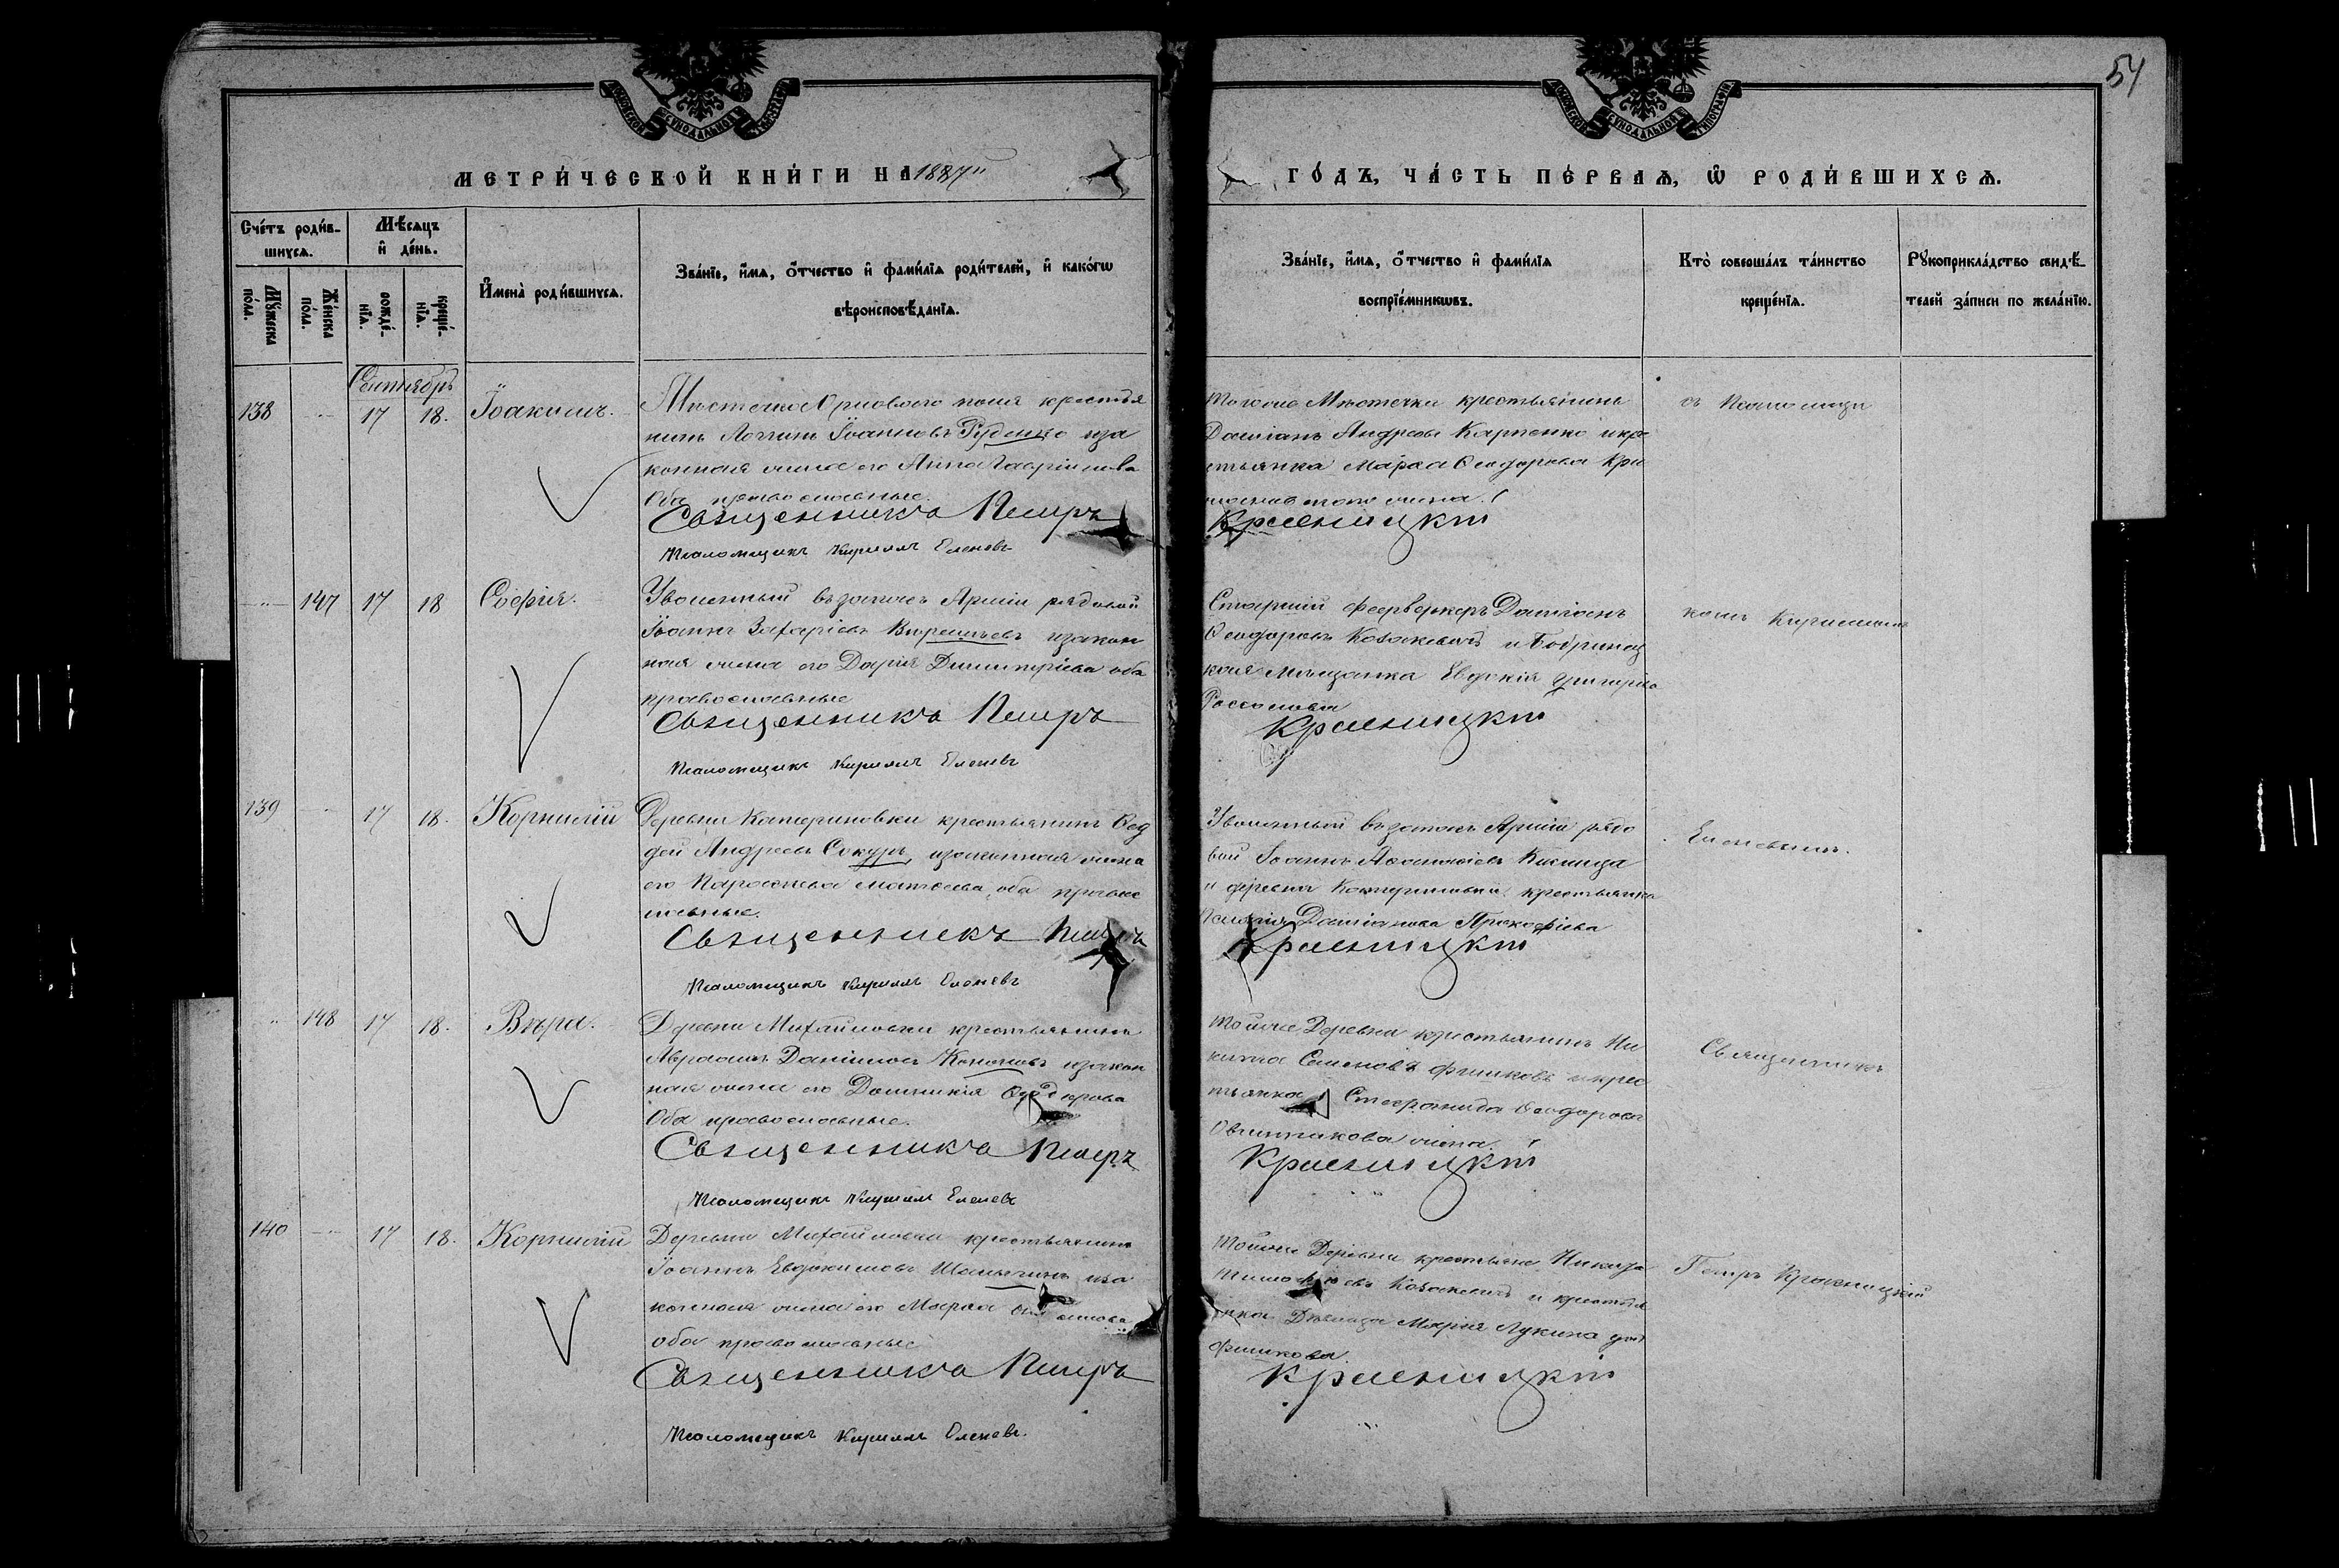 54
МОСКОВСКОЙ СѴНОДАЛЬНОЙ ТИПОГРАФІИ
МОСКОВСКОЙ СѴНОДАЛЬНОЙ ТИПОГРАФІИ
МЕТРИ́ЧЕСКОЙ КНИ́ГИ НА 1887
ГО́ДЪ, ЧА́СТЬ ПЕ́РВАѦ, Ѡ҆ РОДИ́ВШИХСѦ.
Сче́тъ роди́в-
шихсѧ.
Мѣ́сѧцъ
и҆ де́нь.
Мꙋ́жеска
по́ла.
Же́нска
по́ла.
рожде́-
нїѧ.
креще́-
нїѧ.
И҆мена̀ роди́вшихсѧ.
Зва́нїе, и҆́мѧ, ѻ҆́тчество и҆ фами́лїѧ роди́телей, и҆ како́гѡ
вѣроисповѣ́данїѧ.
Зва́нїе, и҆́мѧ, ѻ҆́тчество и҆ фами́лїѧ
воспрїе́мникѡвъ.
Кто̀ соверша́лъ та́инство
креще́нїѧ.
Рꙋкоприкла́дство свидѣ́-
телей за́писи по жела́нїю.
Сентябрь
138 17 18. Іоакимъ.
крестья
нинъ Логгинъ Іоанновъ Руденко иза
конная жена его Анна Гавріилова
Оба православные.
Священникъ Петръ
Псаломщикъ Кирилъ Еленевъ
крестьянинъ
Даміанъ Андреевъ Карпенко и кре
стьянка Марѳа Ѳеодорова
жена.
Красницкій
съ Псаломщи
147 17 18 Софія.
Уволенный въ запасъ Арміи рядовой
Іоаннъ Захаріевъ изакон
ная жена его Дарія Димитріева оба
православные
Священникъ Петръ
Псаломщикъ Кирилъ Еленевъ
Старшій фейерверкеръ Даміанъ
Ѳеодоровъ Козакевичъ и Бобринец
кая Мѣщанка Евдокія Григорьева
Красницкій
комъ Кирилломъ
139 17 18. Корнилій
Деревни Катериновки крестьянинъ Ѳад
дей Андреевъ Сокуръ, изаконная жена
его Параскева Матѳеева, оба право
славные.
Священникъ Петръ
Псаломщикъ Кирилъ Еленевъ
Уволенный въ запасъ Арміи рядо
вой Іоаннъ Аѳанасіевъ
и деревни Катериновки крестьянка
Даміанова Прокофіева
Красницкій
Еленевымъ.
148 17 18. Вѣра.
Деревни Михайловки крестьянинъ
Авраамъ Даніиловъ Кононовъ изакон
ная жена его Домникія
Оба православные.
Священникъ Петръ
Псаломщикъ Кирилъ Еленевъ
Тойже Деревни крестьянинъ Ни
кита Семеновъ Фишковъ и крес
тьянка Стефанида Ѳеодорова
Овчинникова жена.
Красницкій
Священникъ
140 17 18. Корнилій
Деревни Михайловки крестьянинъ
Іоаннъ Евдокимовъ иза
конная жена его Марѳа
оба православные
Священникъ Петръ
Псаломщикъ Кирилъ Еленевъ.
Тойже Деревни крестьяне Никита
Козакевичъ и крестья
нка Дѣвица Марія Лукина дочь
Фишкова.
Красницкій
Петръ Красницкій